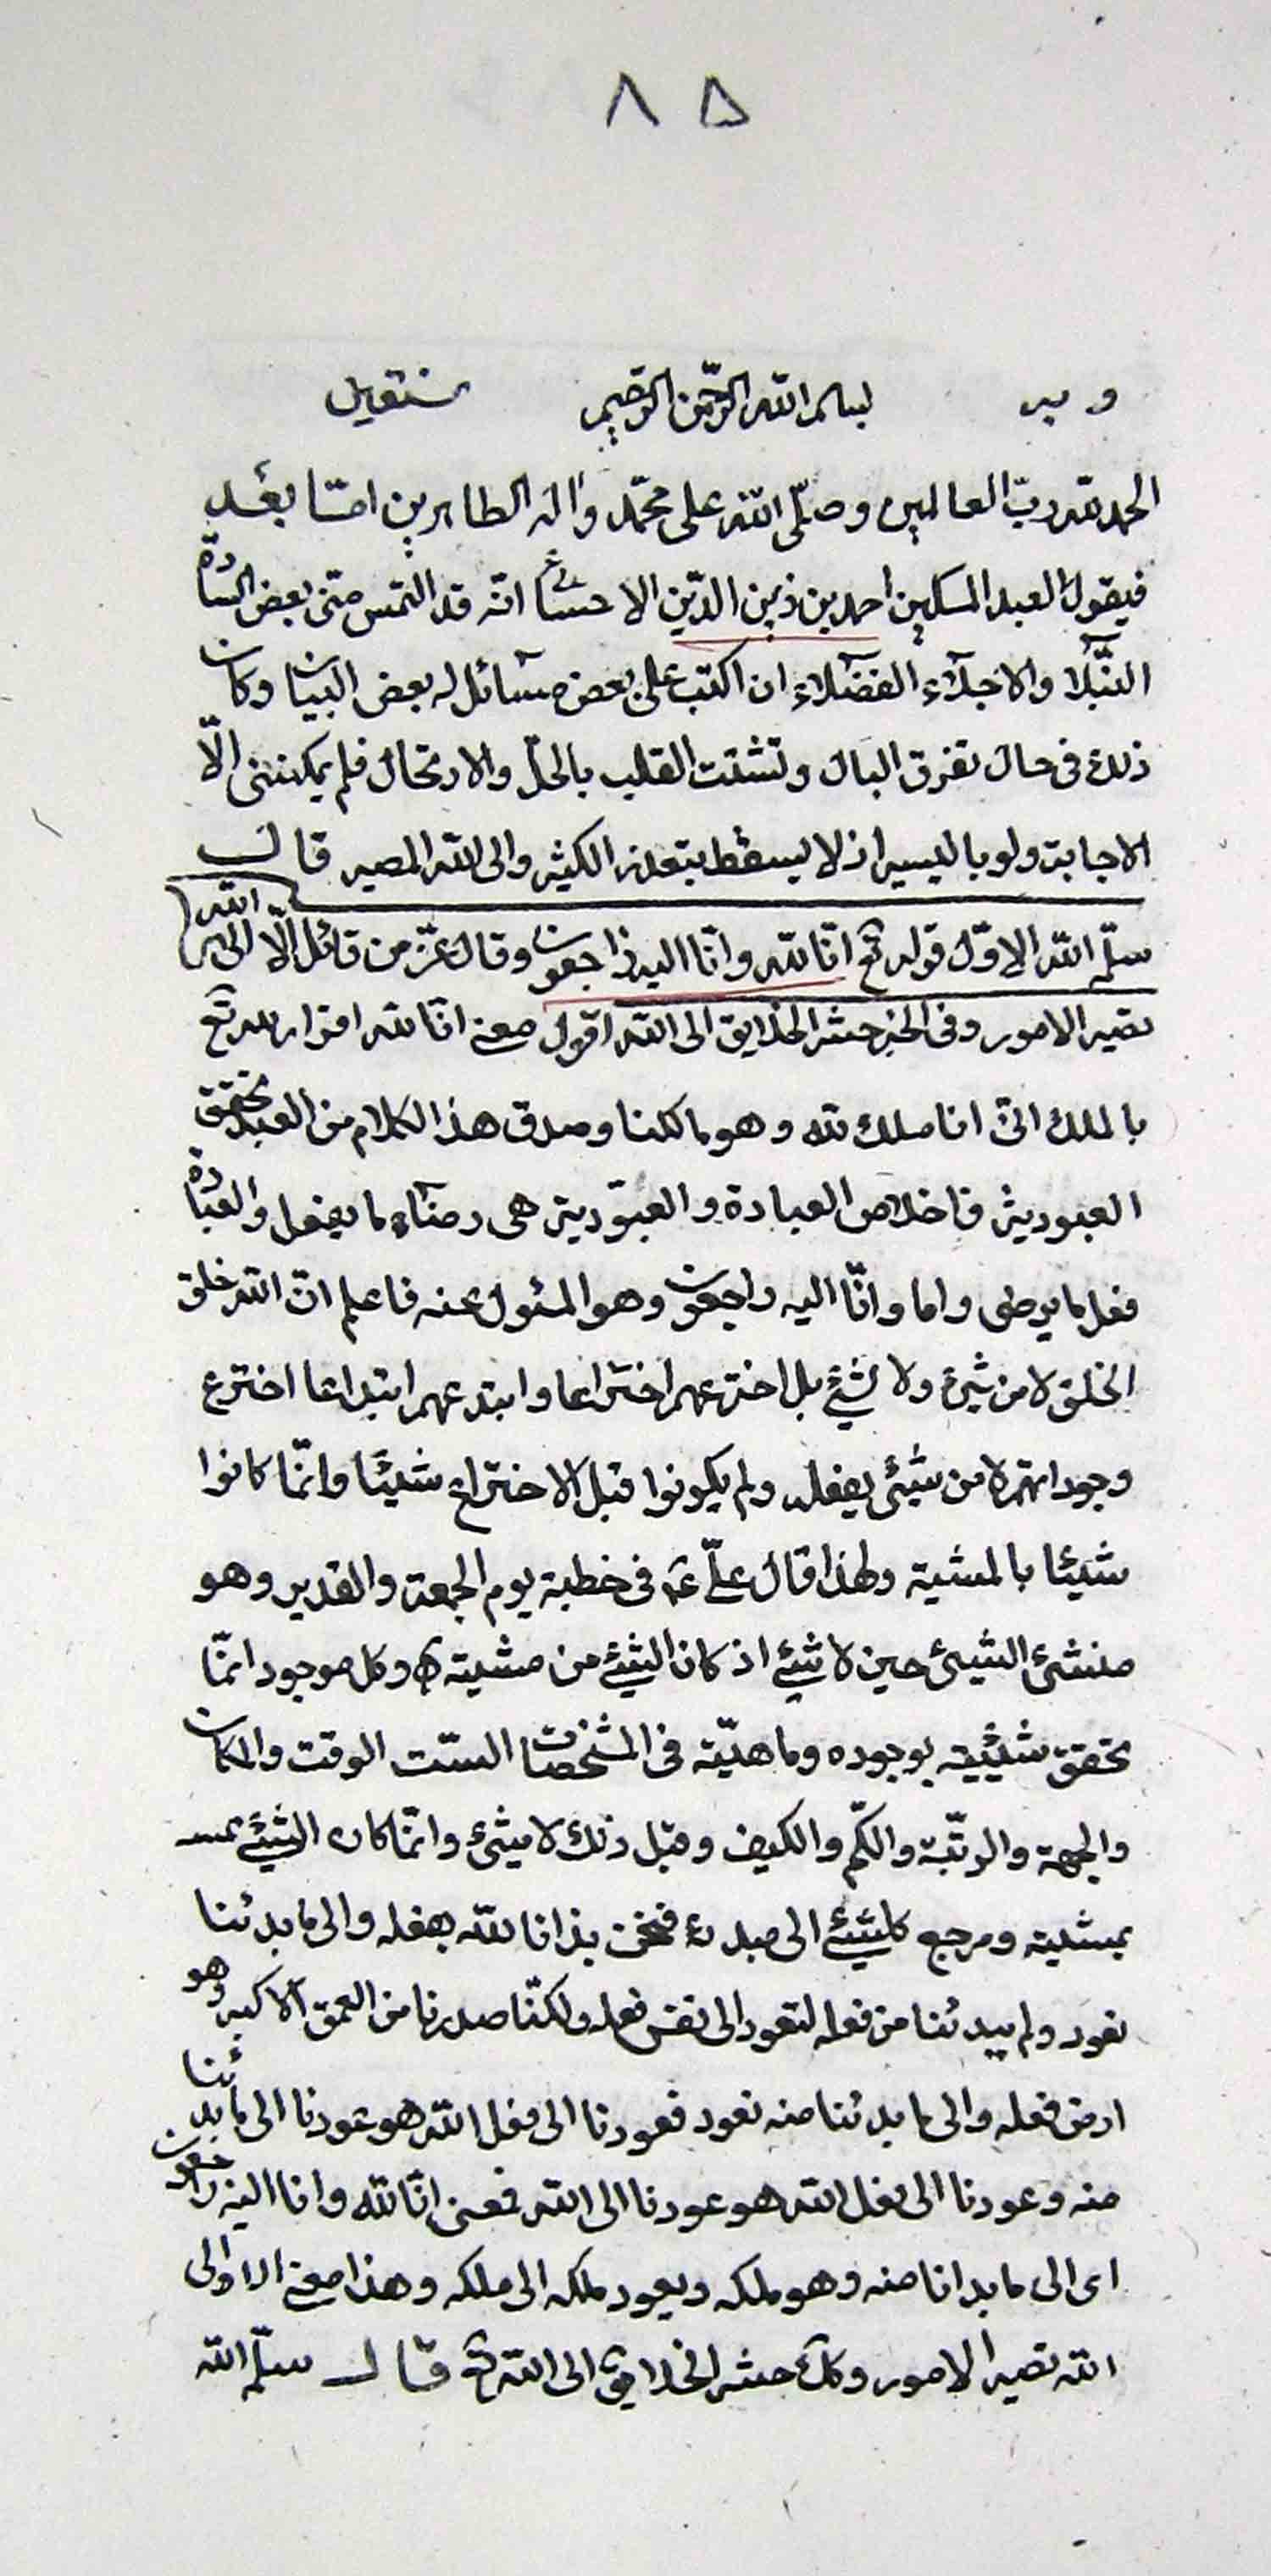 ٨٥
و به بسم الله الرحمن الرحيم نستعين
الحمد لله ربّ العالمين وصلّى الله على محمّد واله الطاهرين امّا بعد
فيقول العبد المسكين احمد بن زين الدّين الاحسائى انّه قد التمس منّى بعض السادة
النبلآء والاجلآء الفضلاء ان اكتب على بعض مسائل له بعض البيان وكان
ذلك فى حال تفرق البال وتشتت القلب بالحلّ والارتحال فلم يمكننى الّا
الاجابة ولو باليسير اذ لا يسقط بتعذر الكثير والى الله المصير قال
سلّمه الله الاوّل قوله تع انّا لله وانّا اليه راجعون وقال عزّ من قائل الّا الى الله
تصير الامور وفى الخبر حشر الخلايق الى الله اقول معنى انّا لله اقرار لله تع
بالملك اىّ انا ملك لله وهو مالكنا وصدق هذا الكلام من العبد تحقق
العبودية فاخلاص العبادة والعبوّدية هى رضاء ما يفعل والعبادة
فعل ما يرضى واما وانّا اليه راجعون وهو المسئول عنه فاعلم انّ الله خلق
الخلق لا من شىء ولا لشىء بل اخترعهم اختراعا وابتدعهم ابتداعا اخترع
وجوداتهم لا من شيئ بفعله ولم يكونوا قبل الاختراع شيئا وانّما كانوا
شيئا بالمشية ولهذا قال علىّ ع فى خطبة يوم الجمعة والغدير وهو
منشئ الشيئ حين لا شيئ اذ كان الشيئ من مشيته وكل موجود انمّا
تحقق شيئيته بوجوده وماهيّته فى المشخصات الستّ الوقت والمكان
والجهة والرتّبة والكمّ والكيف وقبل ذلك لا شيئ وانمّا كان الشيئ
بمشيته ومرجع كلشيئ الى مبدئه فنحن بدانا لله بفعله والى ما بدئنا
نعود ولم يبدئنا من فعله لنعود الى نفس فعله ولكنّا صدرنا من العمق الاكبر وهو
ارض فعله والى ما بدئنا منه نعود فعودنا الى فعل الله هو عودنا الى ما بدئنا
منه وعودنا الى فعل الله هو عودنا الى الله فمعنى انّا لله وانا اليه راجعون
اى الى ما بدانا منه وهو ملكه ويعود ملكه الى ملكه وهذا معنى الا الى
الله تصير الامور وكك حشر الخلايق الى الله تع قال سلّمه الله